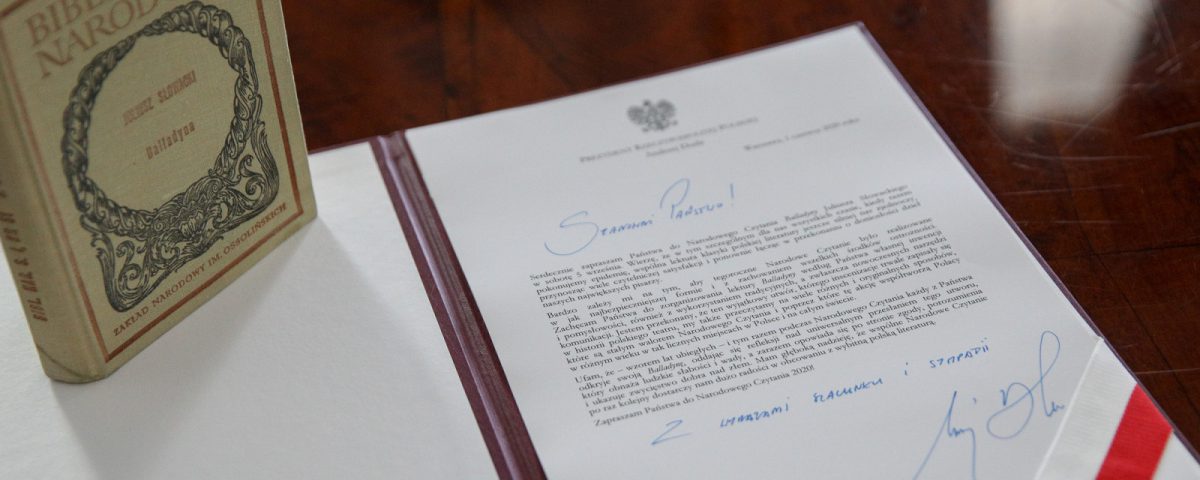 BIBL
NAROD
JULIUSZ SŁOWACKI
Balladyna
ZAKŁAD NARODOWY IM. OSSOLIŃSKICH
PREZYDENT RZECZYPOSPOLITEJ POLSKIEJ
Andrzej Duda
Warszawa, 1 czerwca 2020 roku
Szanowni Państwo!
Serdecznie zapraszam Państwa do Narodowego Czytania Balladyny Juliusza Słowackiego
w sobotę 5 września. Wierzę, że w tym szczególnym dla nas wszystkich czasie, kiedy razem
pokonujemy epidemię, wspólna lektura klasyki polskiej literatury jeszcze silniej nas zjednoczy,
przynosząc wiele czytelniczej satysfakcji i ponownie łącząc w przekonaniu o doniosłości dzieł
naszych największych pisarzy.
Bardzo zależy mi na tym, aby tegoroczne Narodowe Czytanie było realizowane
w jak najbezpieczniejszej formie i z zachowaniem wszelkich środków ostrożności.
Zachęcam Państwa do zorganizowania lektury Balladyny według Państwa własnej inwencji
i pomysłowości, również z wykorzystaniem nowoczesnych narzędzi
komunikacji. Jestem przekonany, że ten wyjątkowy utwór, którego inscenizacje trwale zapisały się
w historii polskiego teatru, my także przeczytamy na wiele różnych i oryginalnych sposobów,
które są stałym walorem Narodowego Czytania i poprzez które tę akcję współtworzą Polacy
w różnym wieku w tak licznych miejscach w Polsce i na całym świecie.
Ufam, że – wzorem lat ubiegłych – i tym razem podczas Narodowego Czytania każdy z Państwa
odkryje swoją Balladynę, oddając się refleksji nad uniwersalnym przesłaniem tego utworu,
który obnaża ludzkie słabości i wady, a zarazem opowiada się po stronie zgody, porozumienia
i ukazuje zwycięstwo dobra nad złem. Mam głęboką nadzieję, że wspólne Narodowe Czytanie
po raz kolejny dostarczy nam dużo radości w obcowaniu z wybitną polską literaturą.
Zapraszam Państwa do Narodowego Czytania 2020!
Z wyrazami szacunku i sympatii